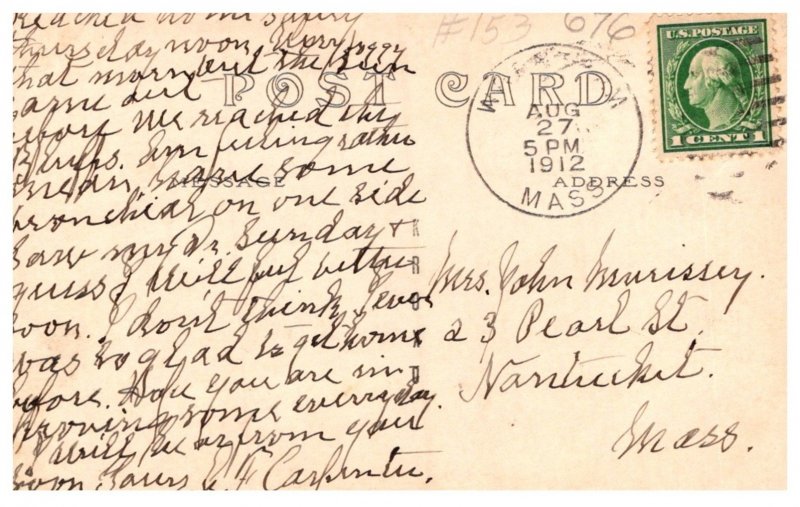 Reached home safely
Thursday noon. Very foggy
that morn but the sun
came out
before we reached the
Am feeling rather
mean, have some
bronchial on one side
saw my Dr. Sunday &
guess I will feel better
soon. I don't think I ever
was so glad to get home
before. Hope you are im
proving some everyday.
I will hear from you
soon. Yours Carpenter.
#153 676
POST CARD
MESSAGE
ADDRESS
AUG
27
5 PM
1912
MASS
U.S. POSTAGE
1 CENT 1
Mrs. John Murissey.
23 Pearl St.
Nantucket.
Mass.